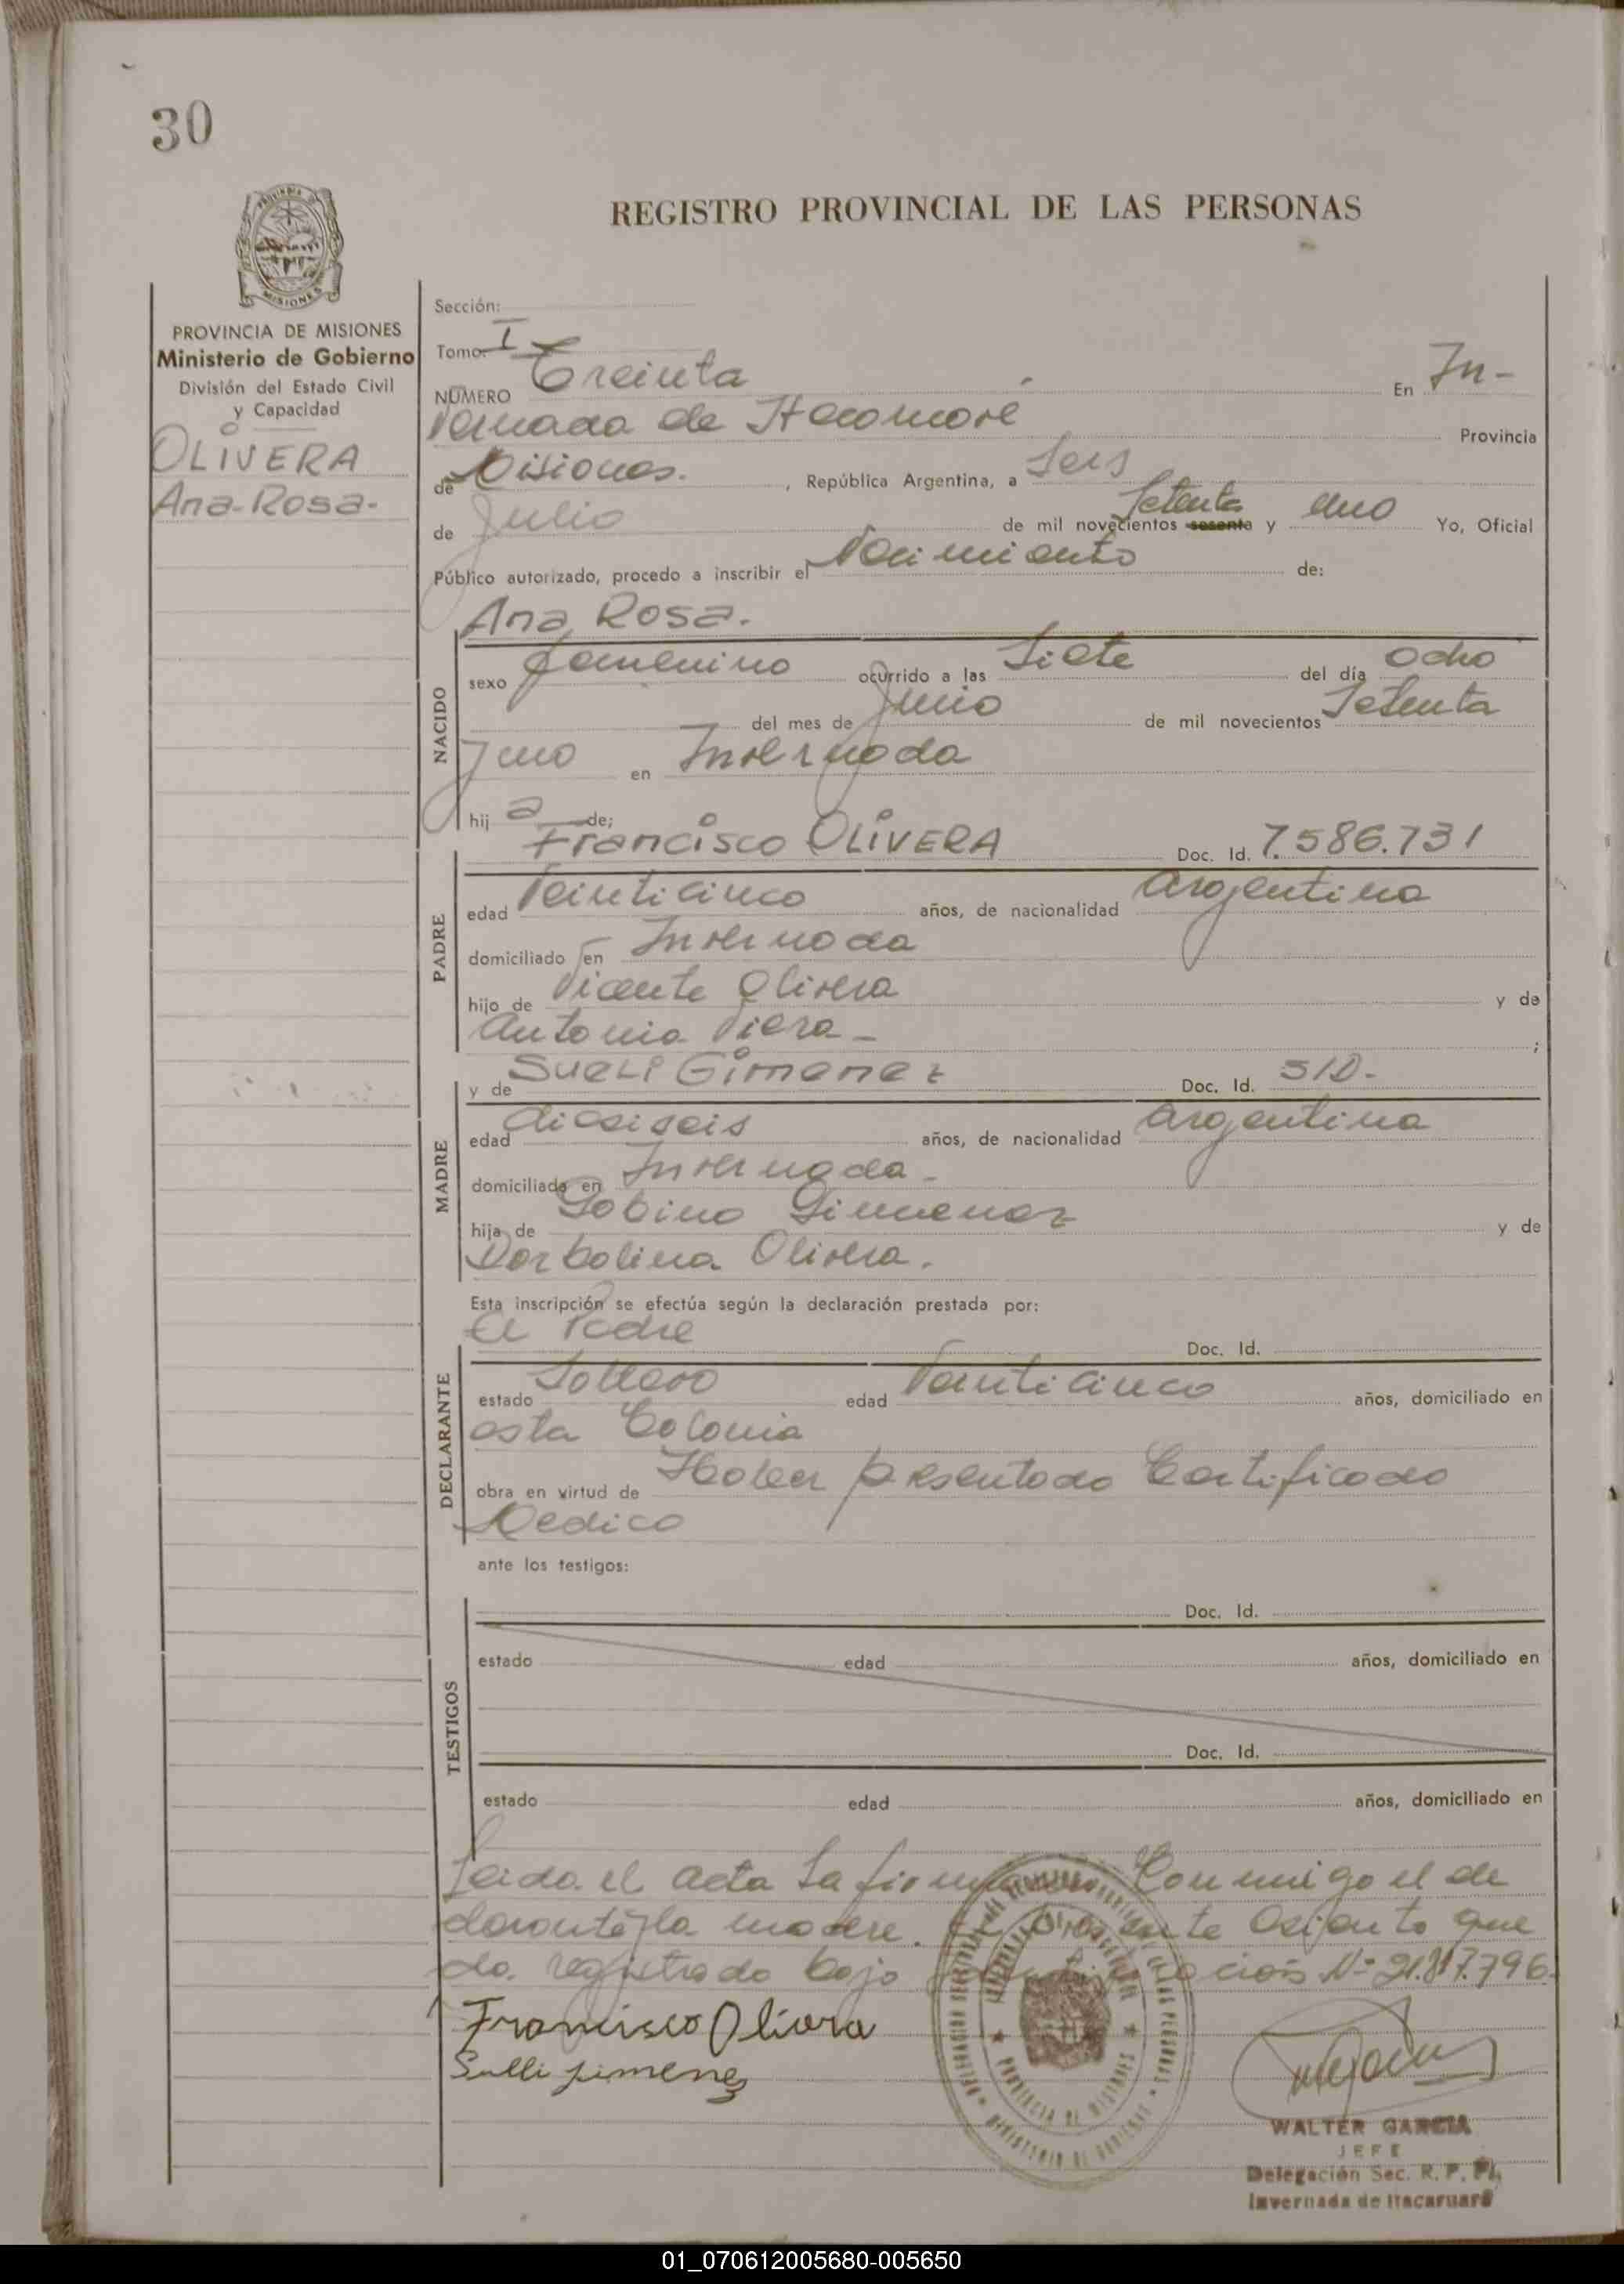 30
REGISTRO PROVINCIAL DE LAS PERSONAS
MISIONES
PROVINCIA DE MISIONES
Ministerio de Gobierno
División del Estado Civil
y Capacidad
OLIVERA
Ana-Rosa-
Sección:
Tomo: I
NÚMERO Treinta En In-
vernada de Itacaruaré Provincia
de Misiones. , República Argentina, a Seis
de Julio de mil novecientos sesenta Setenta y uno Yo, Oficial
Público autorizado, procedo a inscribir el Nacimiento de:
Ana Rosa.
NACIDO
sexo femenino ocurrido a las Siete del día Ocho
del mes de Junio de mil novecientos Setenta
y uno en Invernada
hij a de;
PADRE
Francisco OLIVERA Doc. Id. 7.586.731
edad Veinticinco años, de nacionalidad Argentina
domiciliado en Invernada
hijo de Vicente Olivera y de
Antonia Viera - ;
MADRE
y de SUELI Gimenez Doc. Id. S/D.-
edad dieciseis años, de nacionalidad Argentina
domiciliada en Invernada -
hija de Sabino Gimenez y de
Olivera.
Esta inscripción se efectúa según la declaración prestada por:
DECLARANTE
El Padre Doc. Id.
estado Soltero edad Veinticinco años, domiciliado en
esta Colonia
obra en virtud de Haber presentado Certificado
Medico
ante los testigos:
TESTIGOS
Doc. Id.
estado edad años, domiciliado en
Doc. Id.
estado edad años, domiciliado en
Leida el acta la firman Conmigo el de
clarante y la madre. El presente Asiento que
da registrado bajo Nº 21.817.796.
Francisco Olivera
Sulli jimenez
PROVINCIA DE MISIONES
MINISTERIO DE GOBIERNO
WALTER GARCIA
JEFE
Delegación Sec. R. P. P.
Invernada de Itacaruaré
01_070612005680-005650